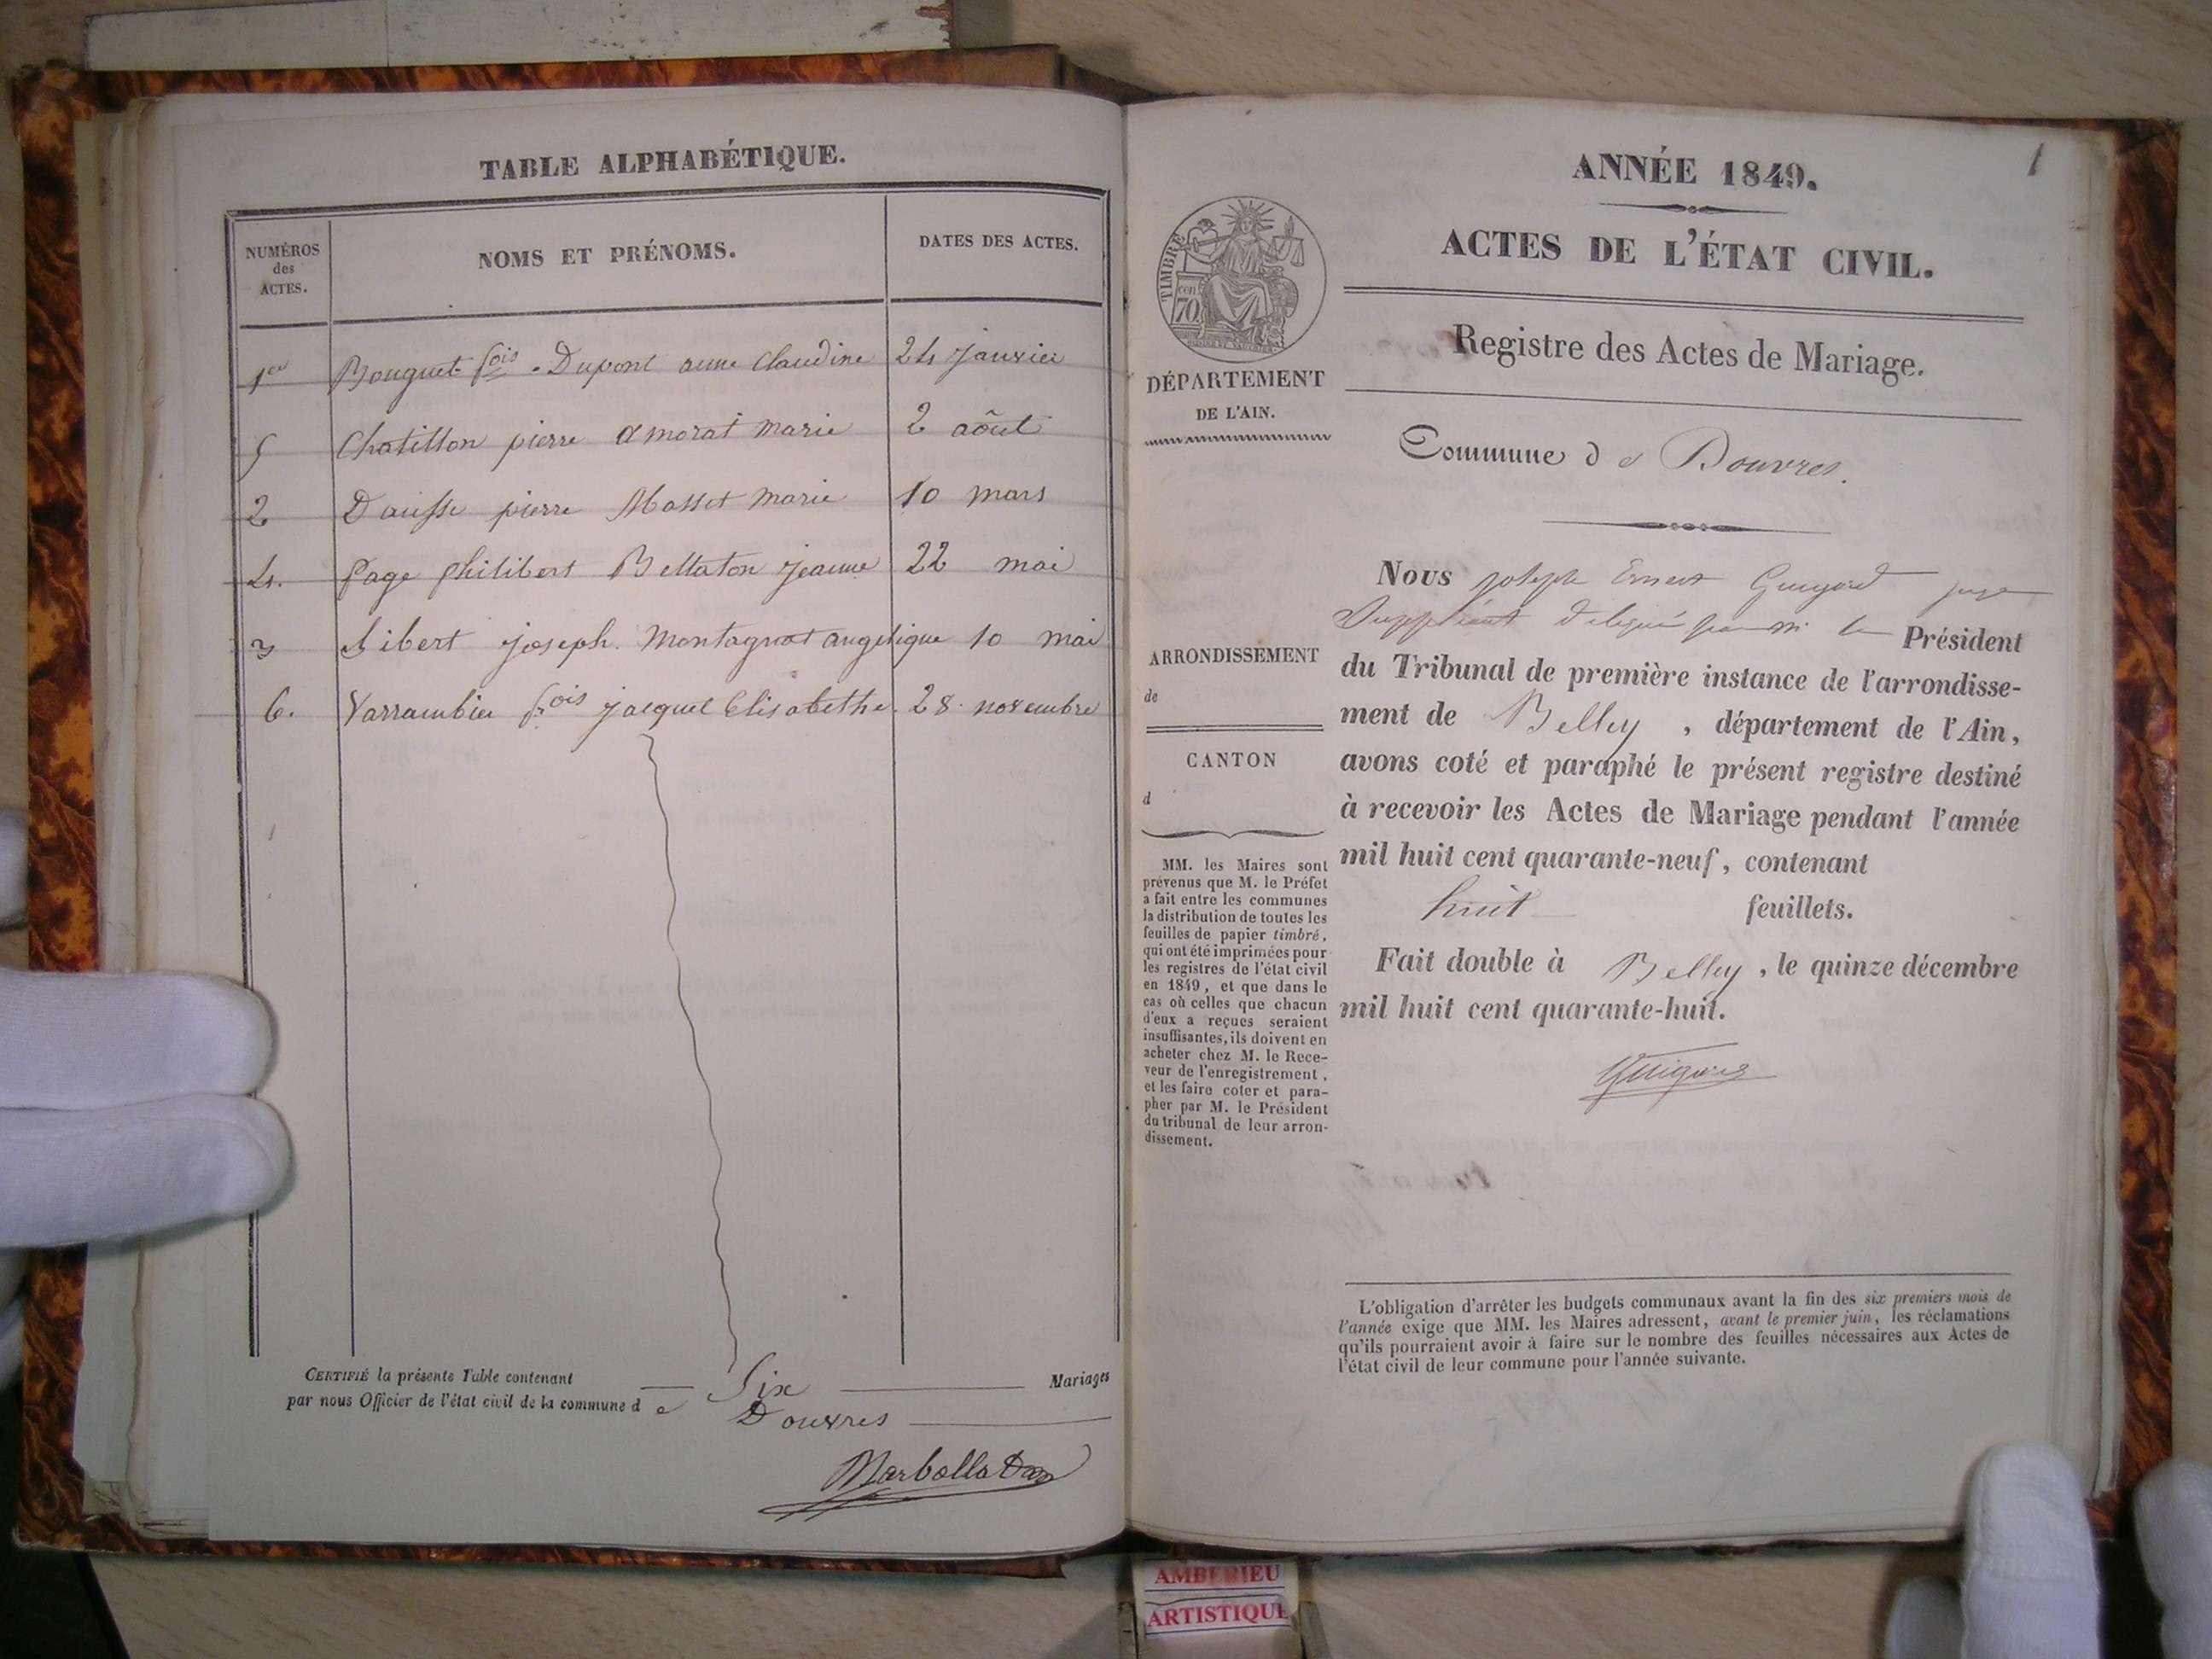 TABLE ALPHABÉTIQUE.
NUMÉROS
des
ACTES.
NOMS ET PRÉNOMS.
DATES DES ACTES.
1er Bouguet fois . Dupont anne Claudine 24 janvier
5 Chatillon pierre amorat marie 2 aôut
2 Dausse pierre Masset marie 10 mars
4. page philibert Bellaton jeanne 22 mai
3 Sibert joseph. Montagnat angelique 10 mai
6. Varrambier fois jacquet Elisabethe. 28. novembre
CERTIFIÉ la présente Table contenant Six Mariages
par nous Officier de l'état civil de la commune de Douvres
1
ANNÉE 1849.
ACTES DE L'ÉTAT CIVIL.
TIMBRE
cen
70
DÉPARTEMENT
DE L'AIN.
Registre des Actes de Mariage.
Commune de Douvres.
Nous joseph Ernest juge
Suppléant délégué par m. le Président
du Tribunal de première instance de l'arrondisse-
ment de Belley , département de l'Ain,
avons coté et paraphé le présent registre destiné
à recevoir les Actes de Mariage pendant l'année
mil huit cent quarante-neuf, contenant
huit feuillets.
Fait double à Belley , le quinze décembre
mil huit cent quarante-huit.
ARRONDISSEMENT
de
CANTON
d
MM. les Maires sont
prévenus que M. le Préfet
a fait entre les communes
la distribution de toutes les
feuilles de papier timbré,
qui ont été imprimées pour
les registres de l'état civil
en 1849, et que dans le
cas où celles que chacun
d'eux a reçues seraient
insuffisantes, ils doivent en
acheter chez M. le Rece-
veur de l'enregistrement,
et les faire coter et para-
pher par M. le Président
du tribunal de leur arron-
dissement.
L'obligation d'arrêter les budgets communaux avant la fin des six premiers mois de
l'année exige que MM. les Maires adressent, avant le premier juin, les réclamations
qu'ils pourraient avoir à faire sur le nombre des feuilles nécessaires aux Actes de
l'état civil de leur commune pour l'année suivante.
AMBERIEU
ARTISTIQUE